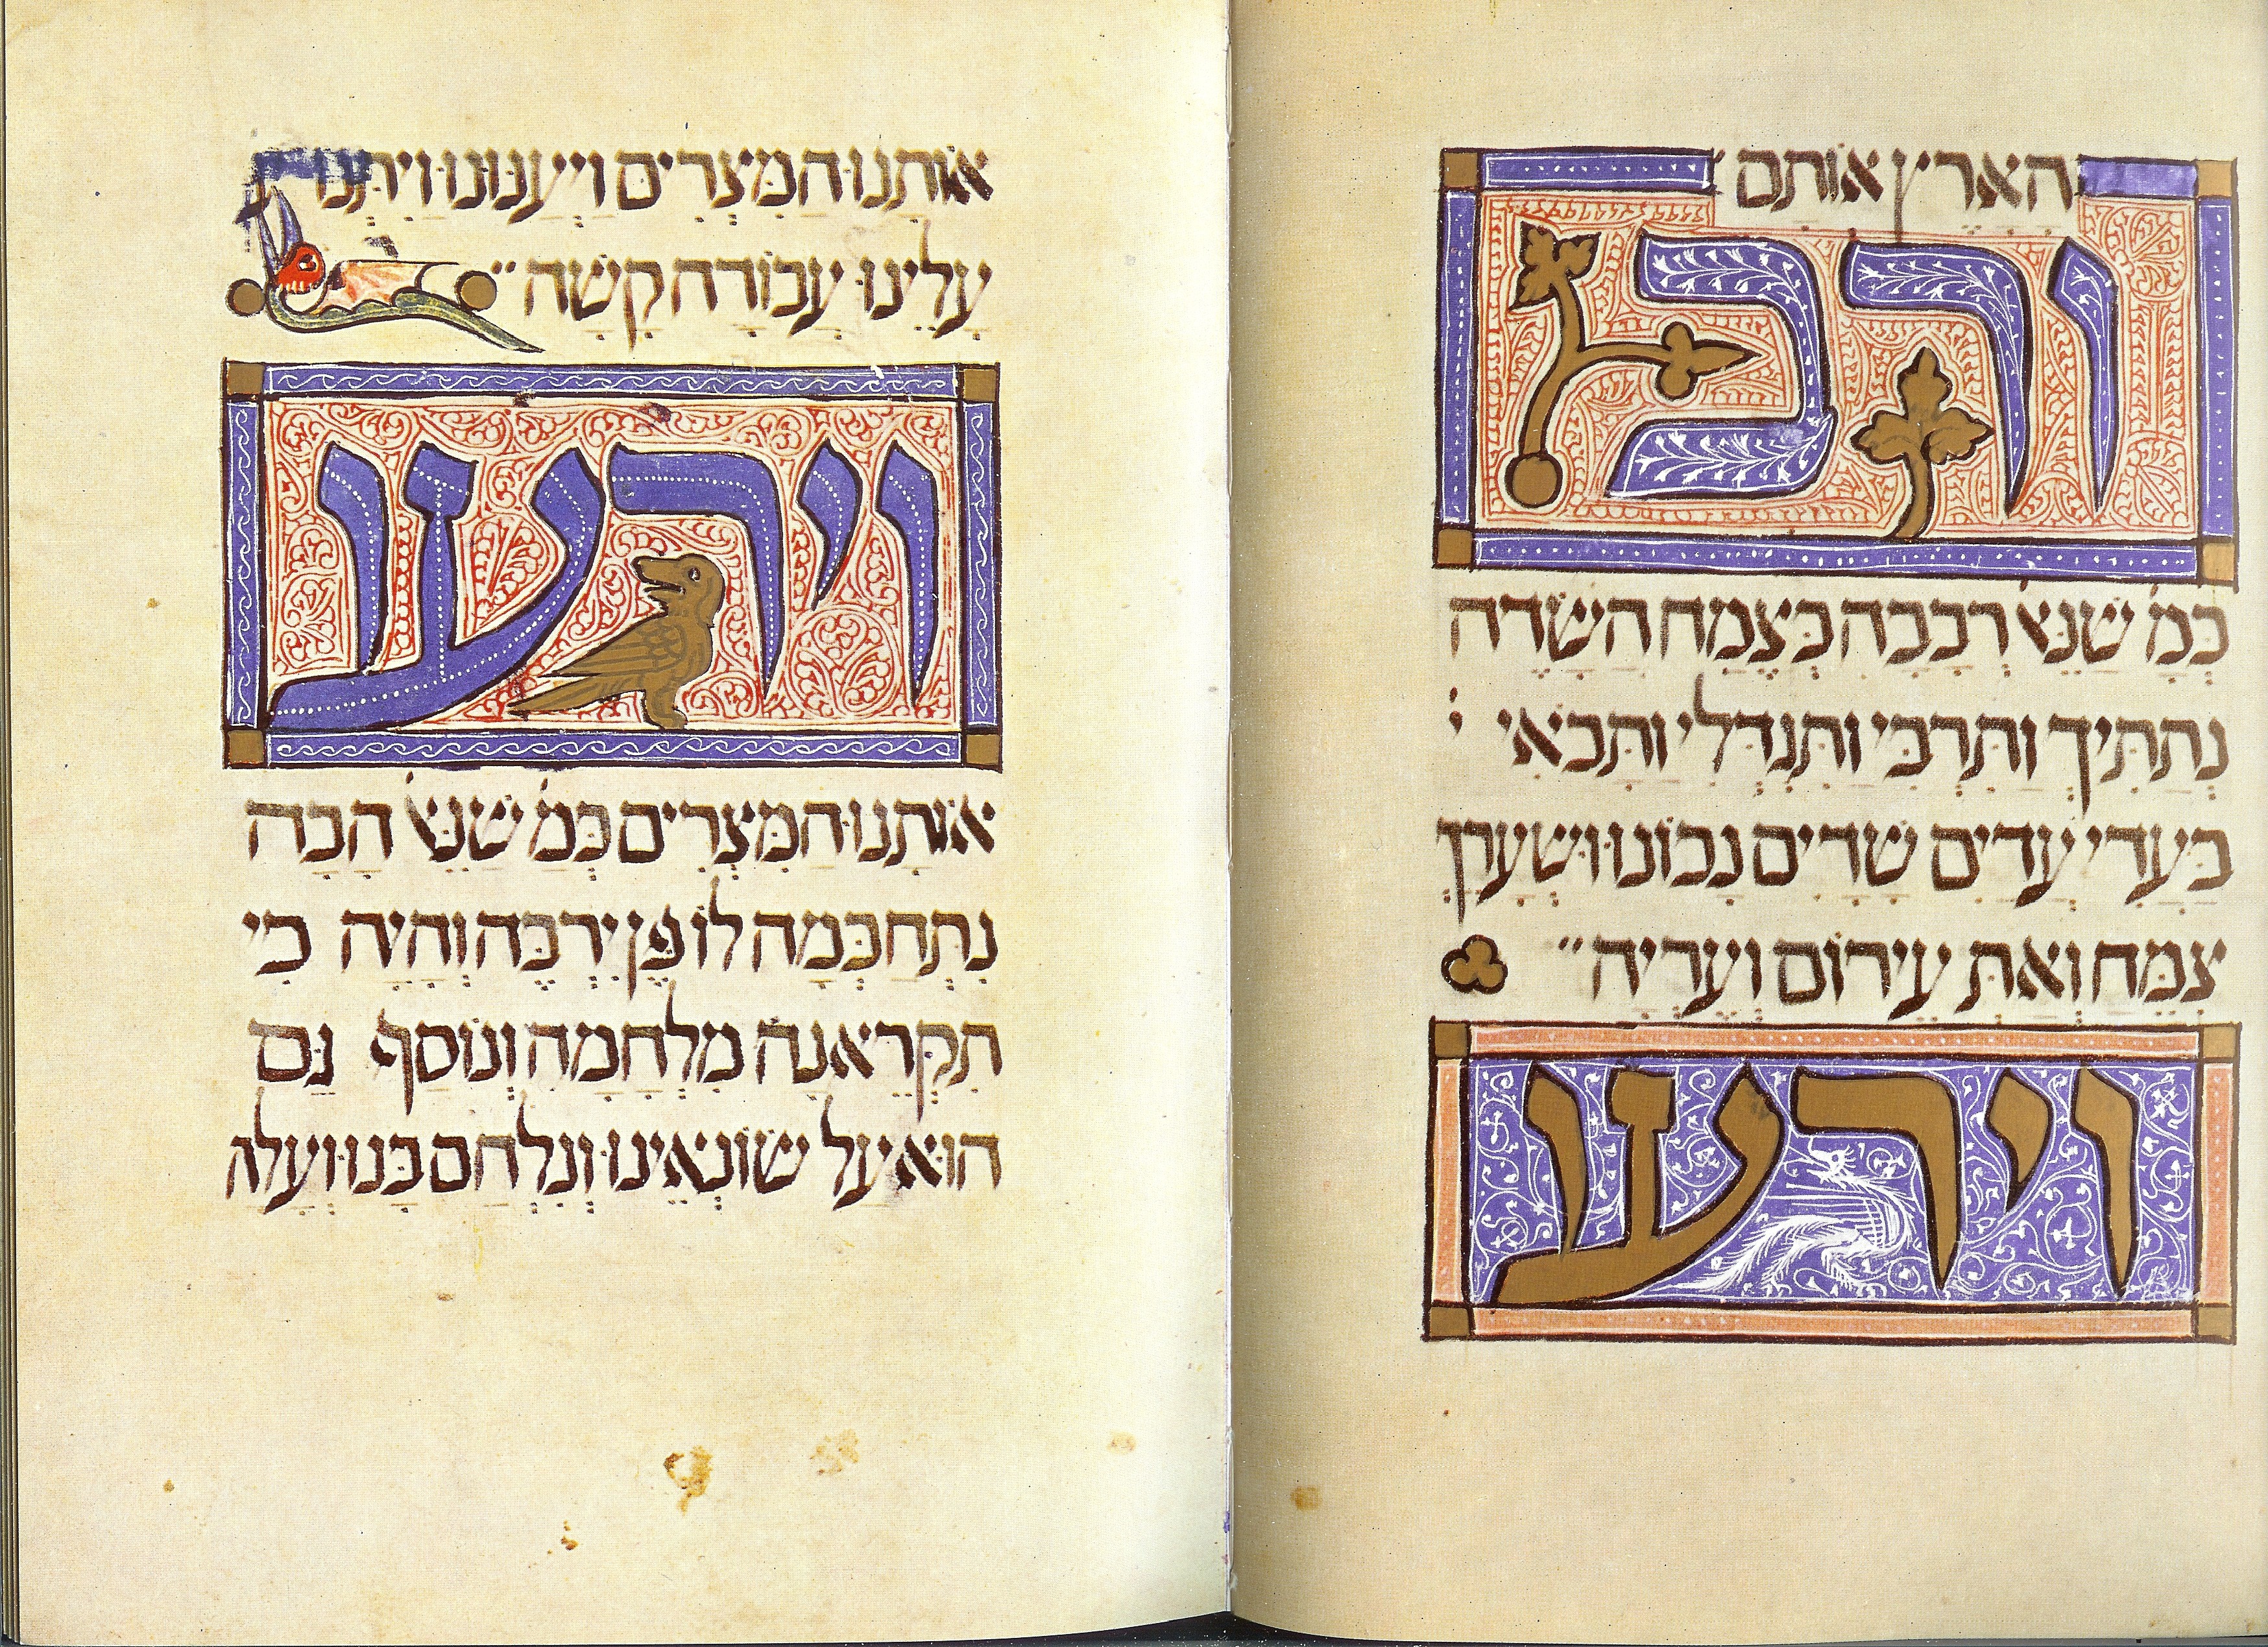 הָאָרֶץ אוֹתָם
ורב
כְּמׄ שֶׁנֶּאׄ רְבָבָה כְּצֶמַח הַשָּׂדֶה
נְתַתִּיךְ וַתִּרְבִּי וַתִּגְדְּלִי וַתָּבֹאִי יׄ
בַּעֲדִי עֲדָיִים שָׁדַיִם נָכוֹנוּ וּשְׂעָרֵךְ
צִמֵּחַ וְאַתְּ עֵירוֹם וְעֶרְיָה ״
וירעו
אוֹתָנוּ הַמִּצְרִים וַיְעַנּוּנוּ וַיִּתְּנוּ
עָלֵינוּ עֲבוֹדָה קָשָׁה ״
וירעו
אוֹתָנוּ הַמִּצְרִים כְּמׄ שֶׁנֶּאׄ הָבָה
נִתְחַכְּמָה לוֹ פֶּן יִרְבֶּה וְהָיָה כִי
תִקְרֶאנָה מִלְחָמָה וְנוֹסַף גַּם
הוּא עַל שׂוֹנְאֵינוּ וְנִלְחַם בָּנוּ וְעָלָה